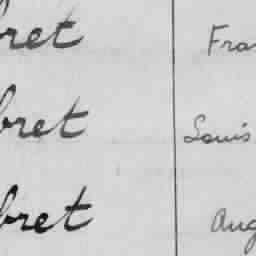 bret Fra
bret Louis
bret Aug